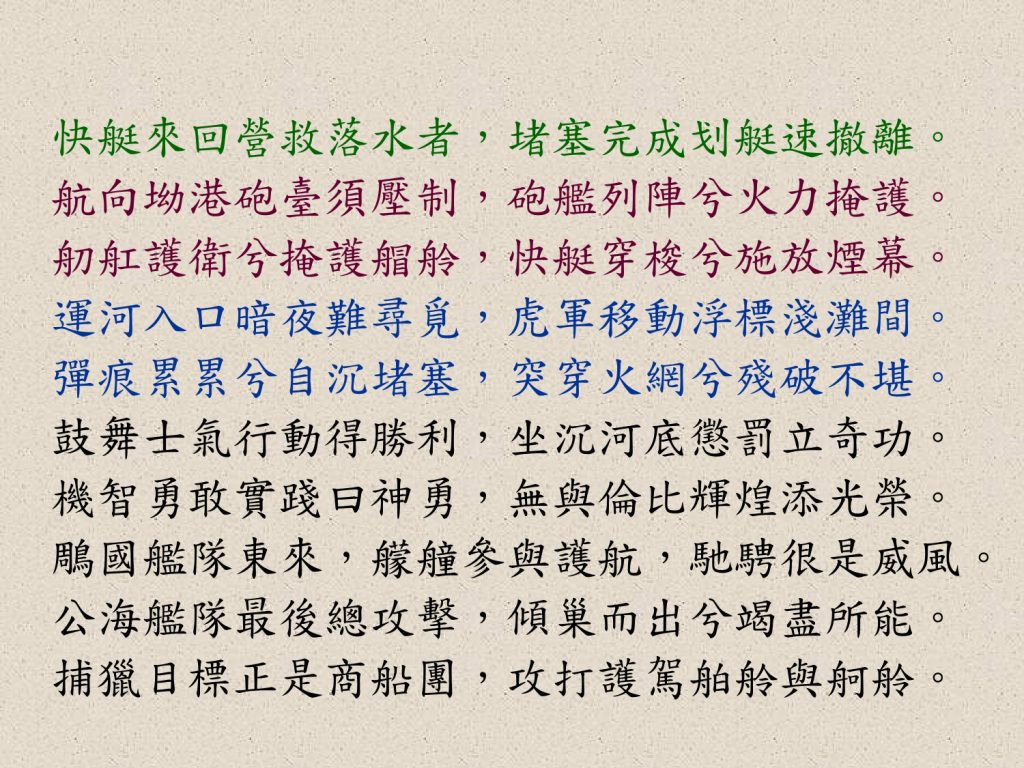 快艇來回營救落水者，堵塞完成划艇速撤離。
航向坳港砲臺須壓制，砲艦列陣兮火力掩護。
舠舡護衛兮掩護艒舲，快艇穿梭兮施放煙幕。
運河入口暗夜難尋覓，虎軍移動浮標淺灘間。
彈痕累累兮自沉堵塞，突穿火網兮殘破不堪。
鼓舞士氣行動得勝利，坐沉河底懲罰立奇功。
機智勇敢實踐曰神勇，無與倫比輝煌添光榮。
鵰國艦隊東來，艨艟參與護航，馳騁很是威風。
公海艦隊最後總攻擊，傾巢而出兮竭盡所能。
捕獵目標正是商船團，攻打護駕舶舲與舸舲。